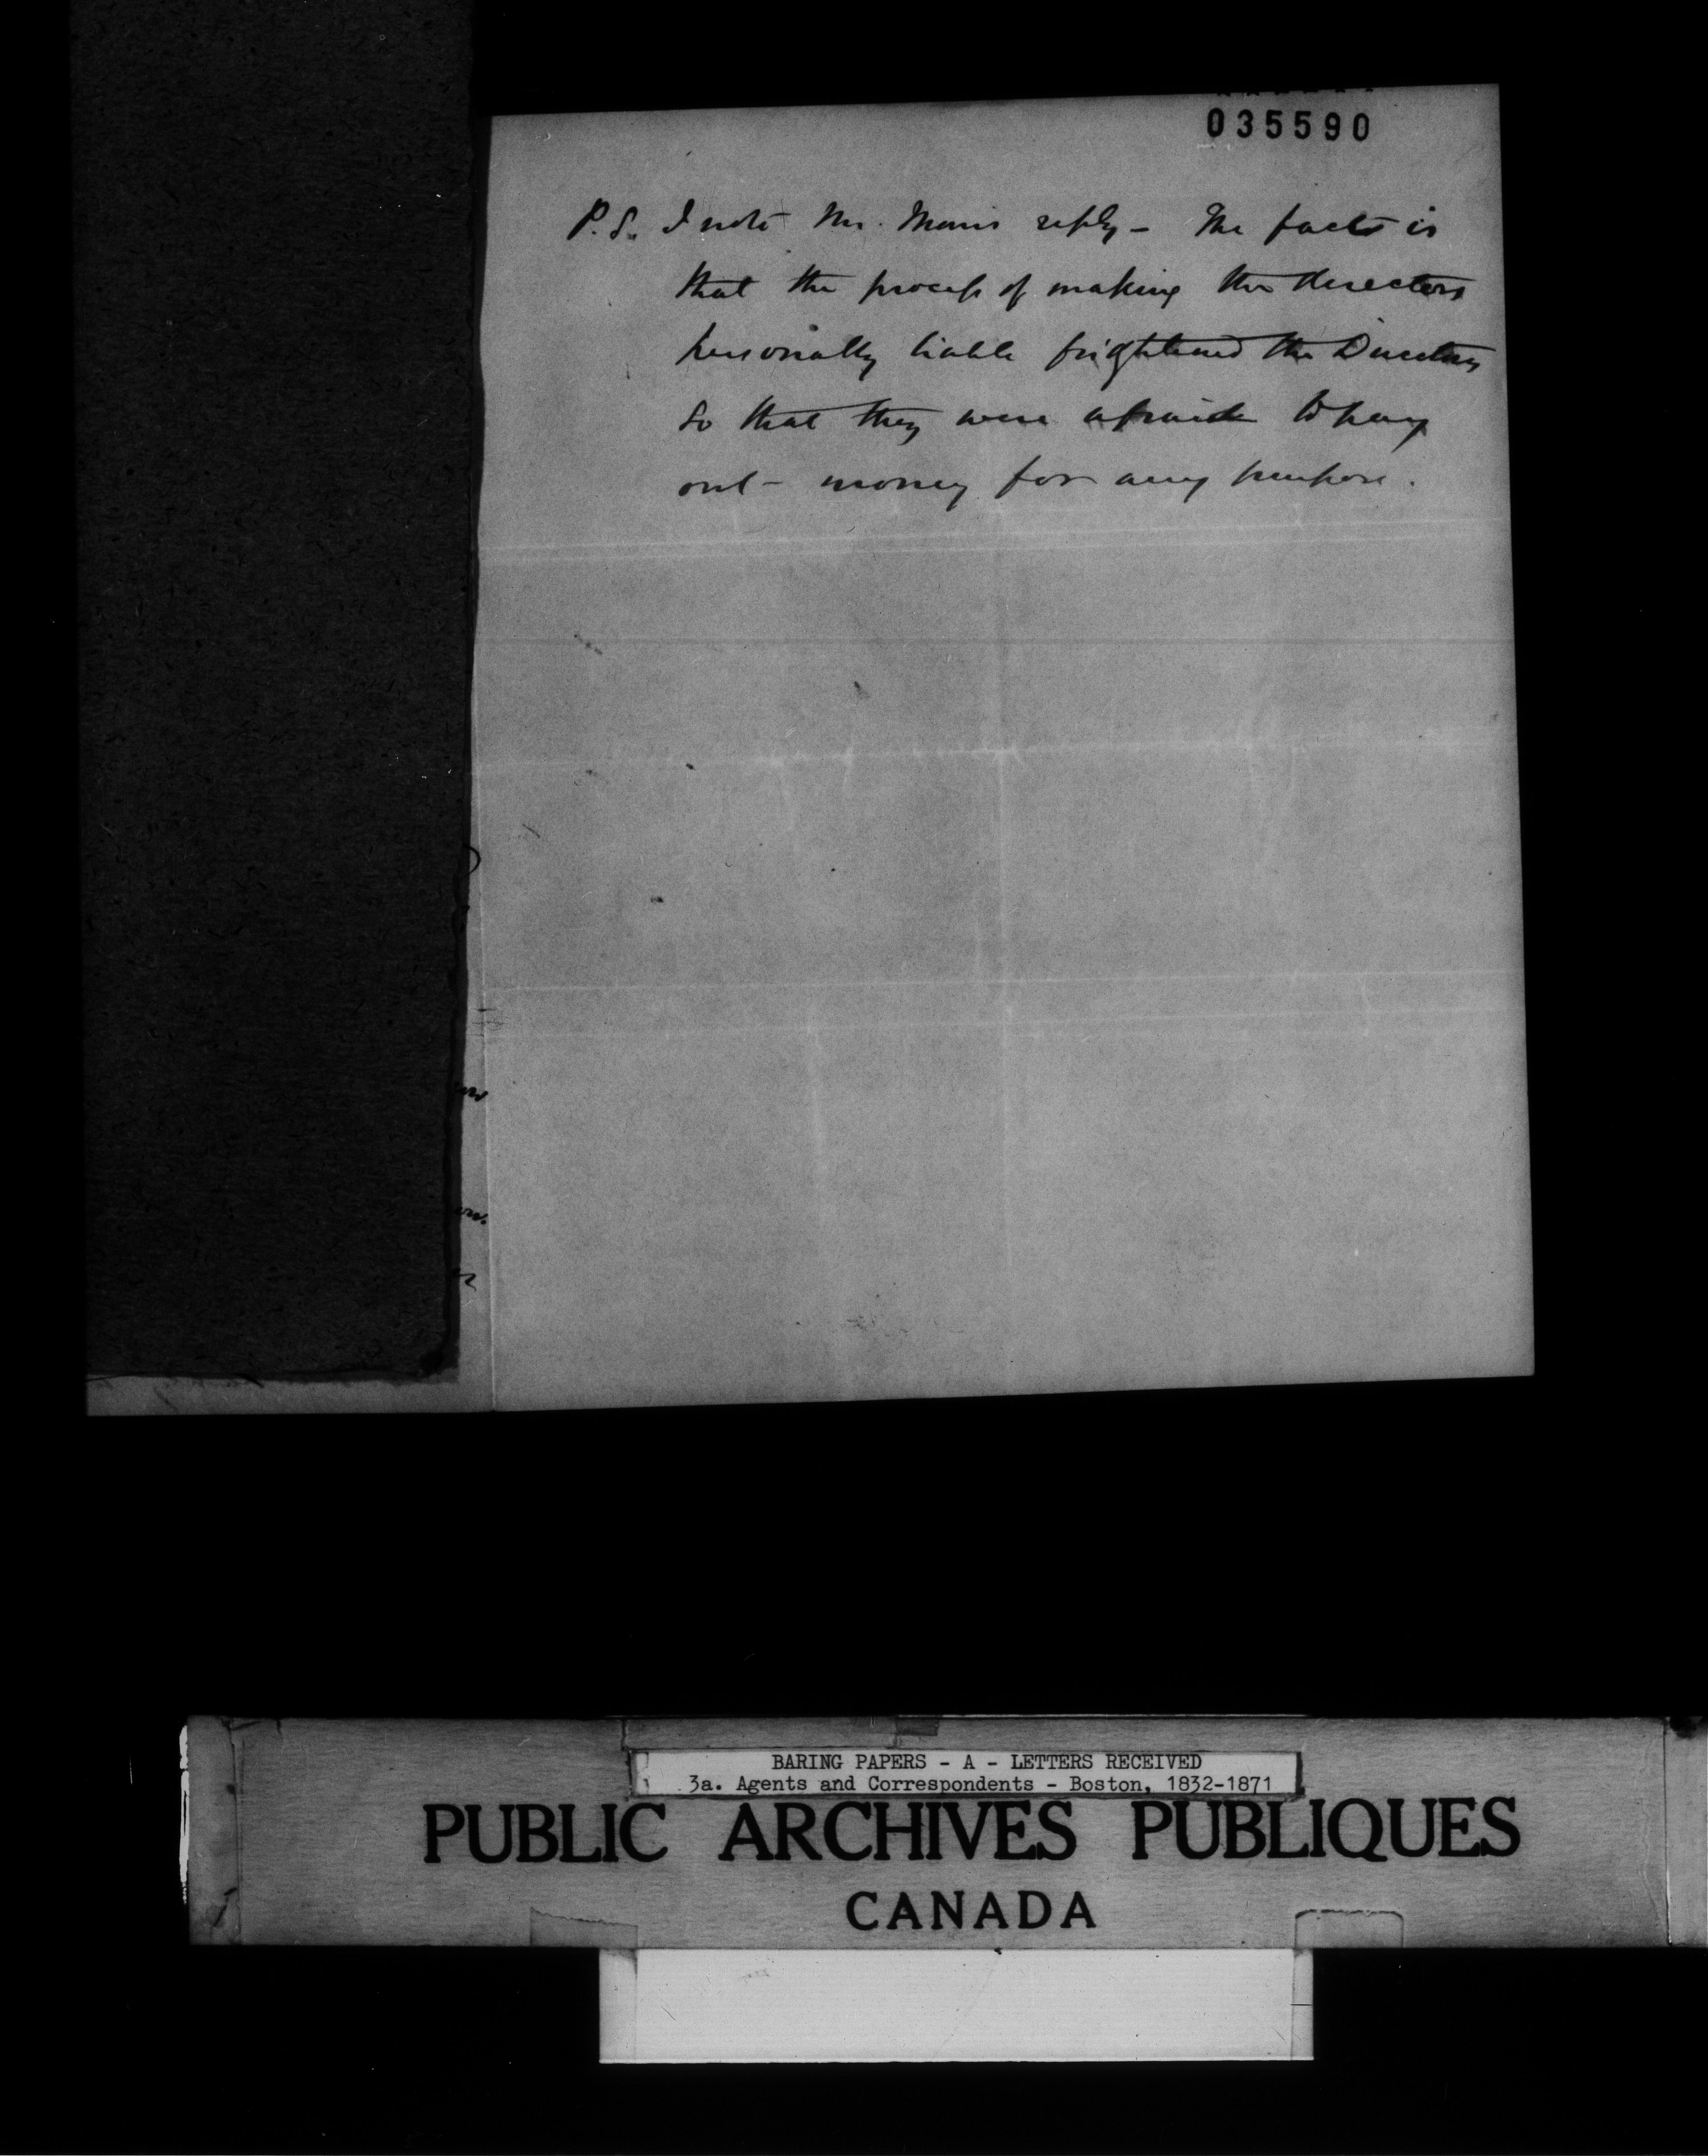 035590
P.S. I note Mr. reply - The facts is
that the process of making the directors
personally liable frightened the Directors
so that they were afraid to pay
out - money for any purpose.
BARING PAPERS - A - LETTERS RECEIVED
3a. Agents and Correspondents - Boston, 1832-1871
PUBLIC ARCHIVES PUBLIQUES
CANADA